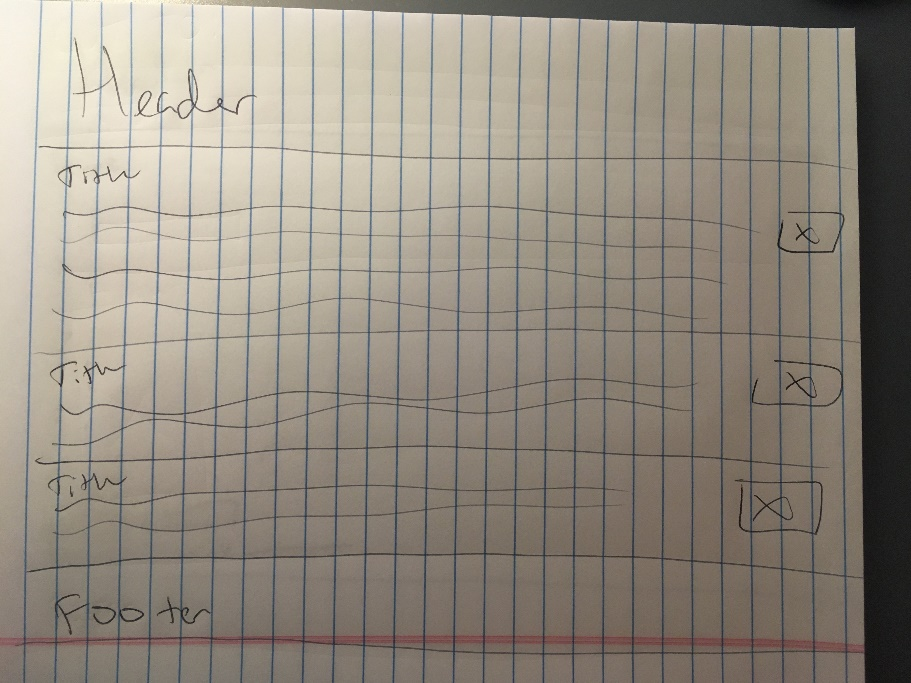 Header
Title
X
Title
X
Title
X
Footer